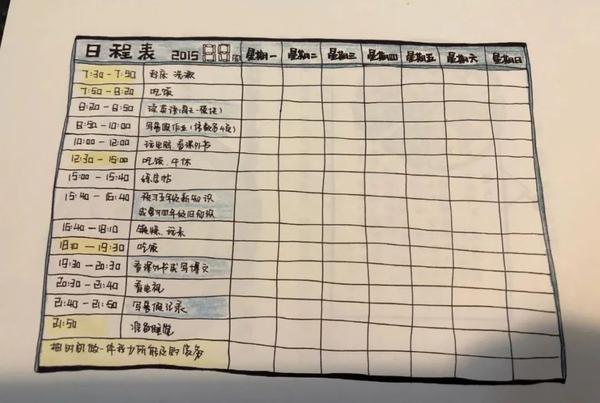 日程表 2015 星期一 星期二 星期三 星期四 星期五 星期六 星期日
7:30-7:50 起床 洗漱
7:50-8:20 吃饭
8:20-8:50 读英语
8:50-10:00 写暑假作业
10:00-12:00 玩电脑、看课外书
12:30-15:00 吃饭、午休
15:00-15:40 练字帖
15:40-16:40 预习五年级新知识
或复习四年级旧知识
16:40-18:10 锻炼、玩耍
18:10-19:30 吃饭
19:30-20:30 看课外书或写博文
20:30-21:40 看电视
21:40-21:50 写暑假记录
21:50 准备睡觉
抽时间做一件我力所能及的家务